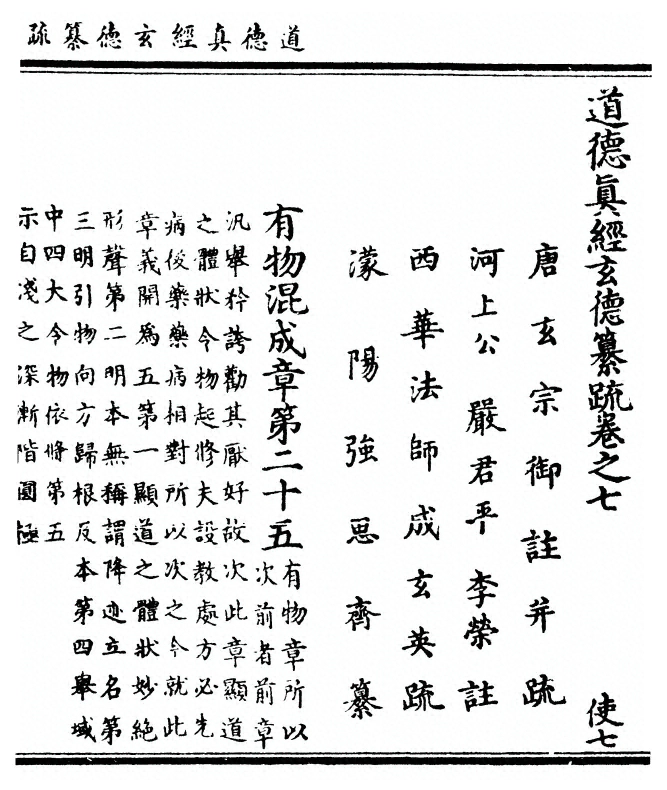 道德真經玄德纂疏
道德眞經玄德纂疏卷之七　使七
唐玄宗御註并疏
河上公嚴君平李榮註
西華法師成玄英疏
濛陽強思齊纂
有物混成章第二十五
有物章所以
次前者前章
汎舉矜誇勸其厭好故次此章顯道
之體狀令物起修夫設教處方必先
病後藥藥病相對所以次之今就此
章義開為五第一顯道之體狀妙絕
形聲第二明本無稱謂降迹立名第
三明引物向方歸根反本第四舉域
中四大令物依修第五
示自淺之深漸階圓極